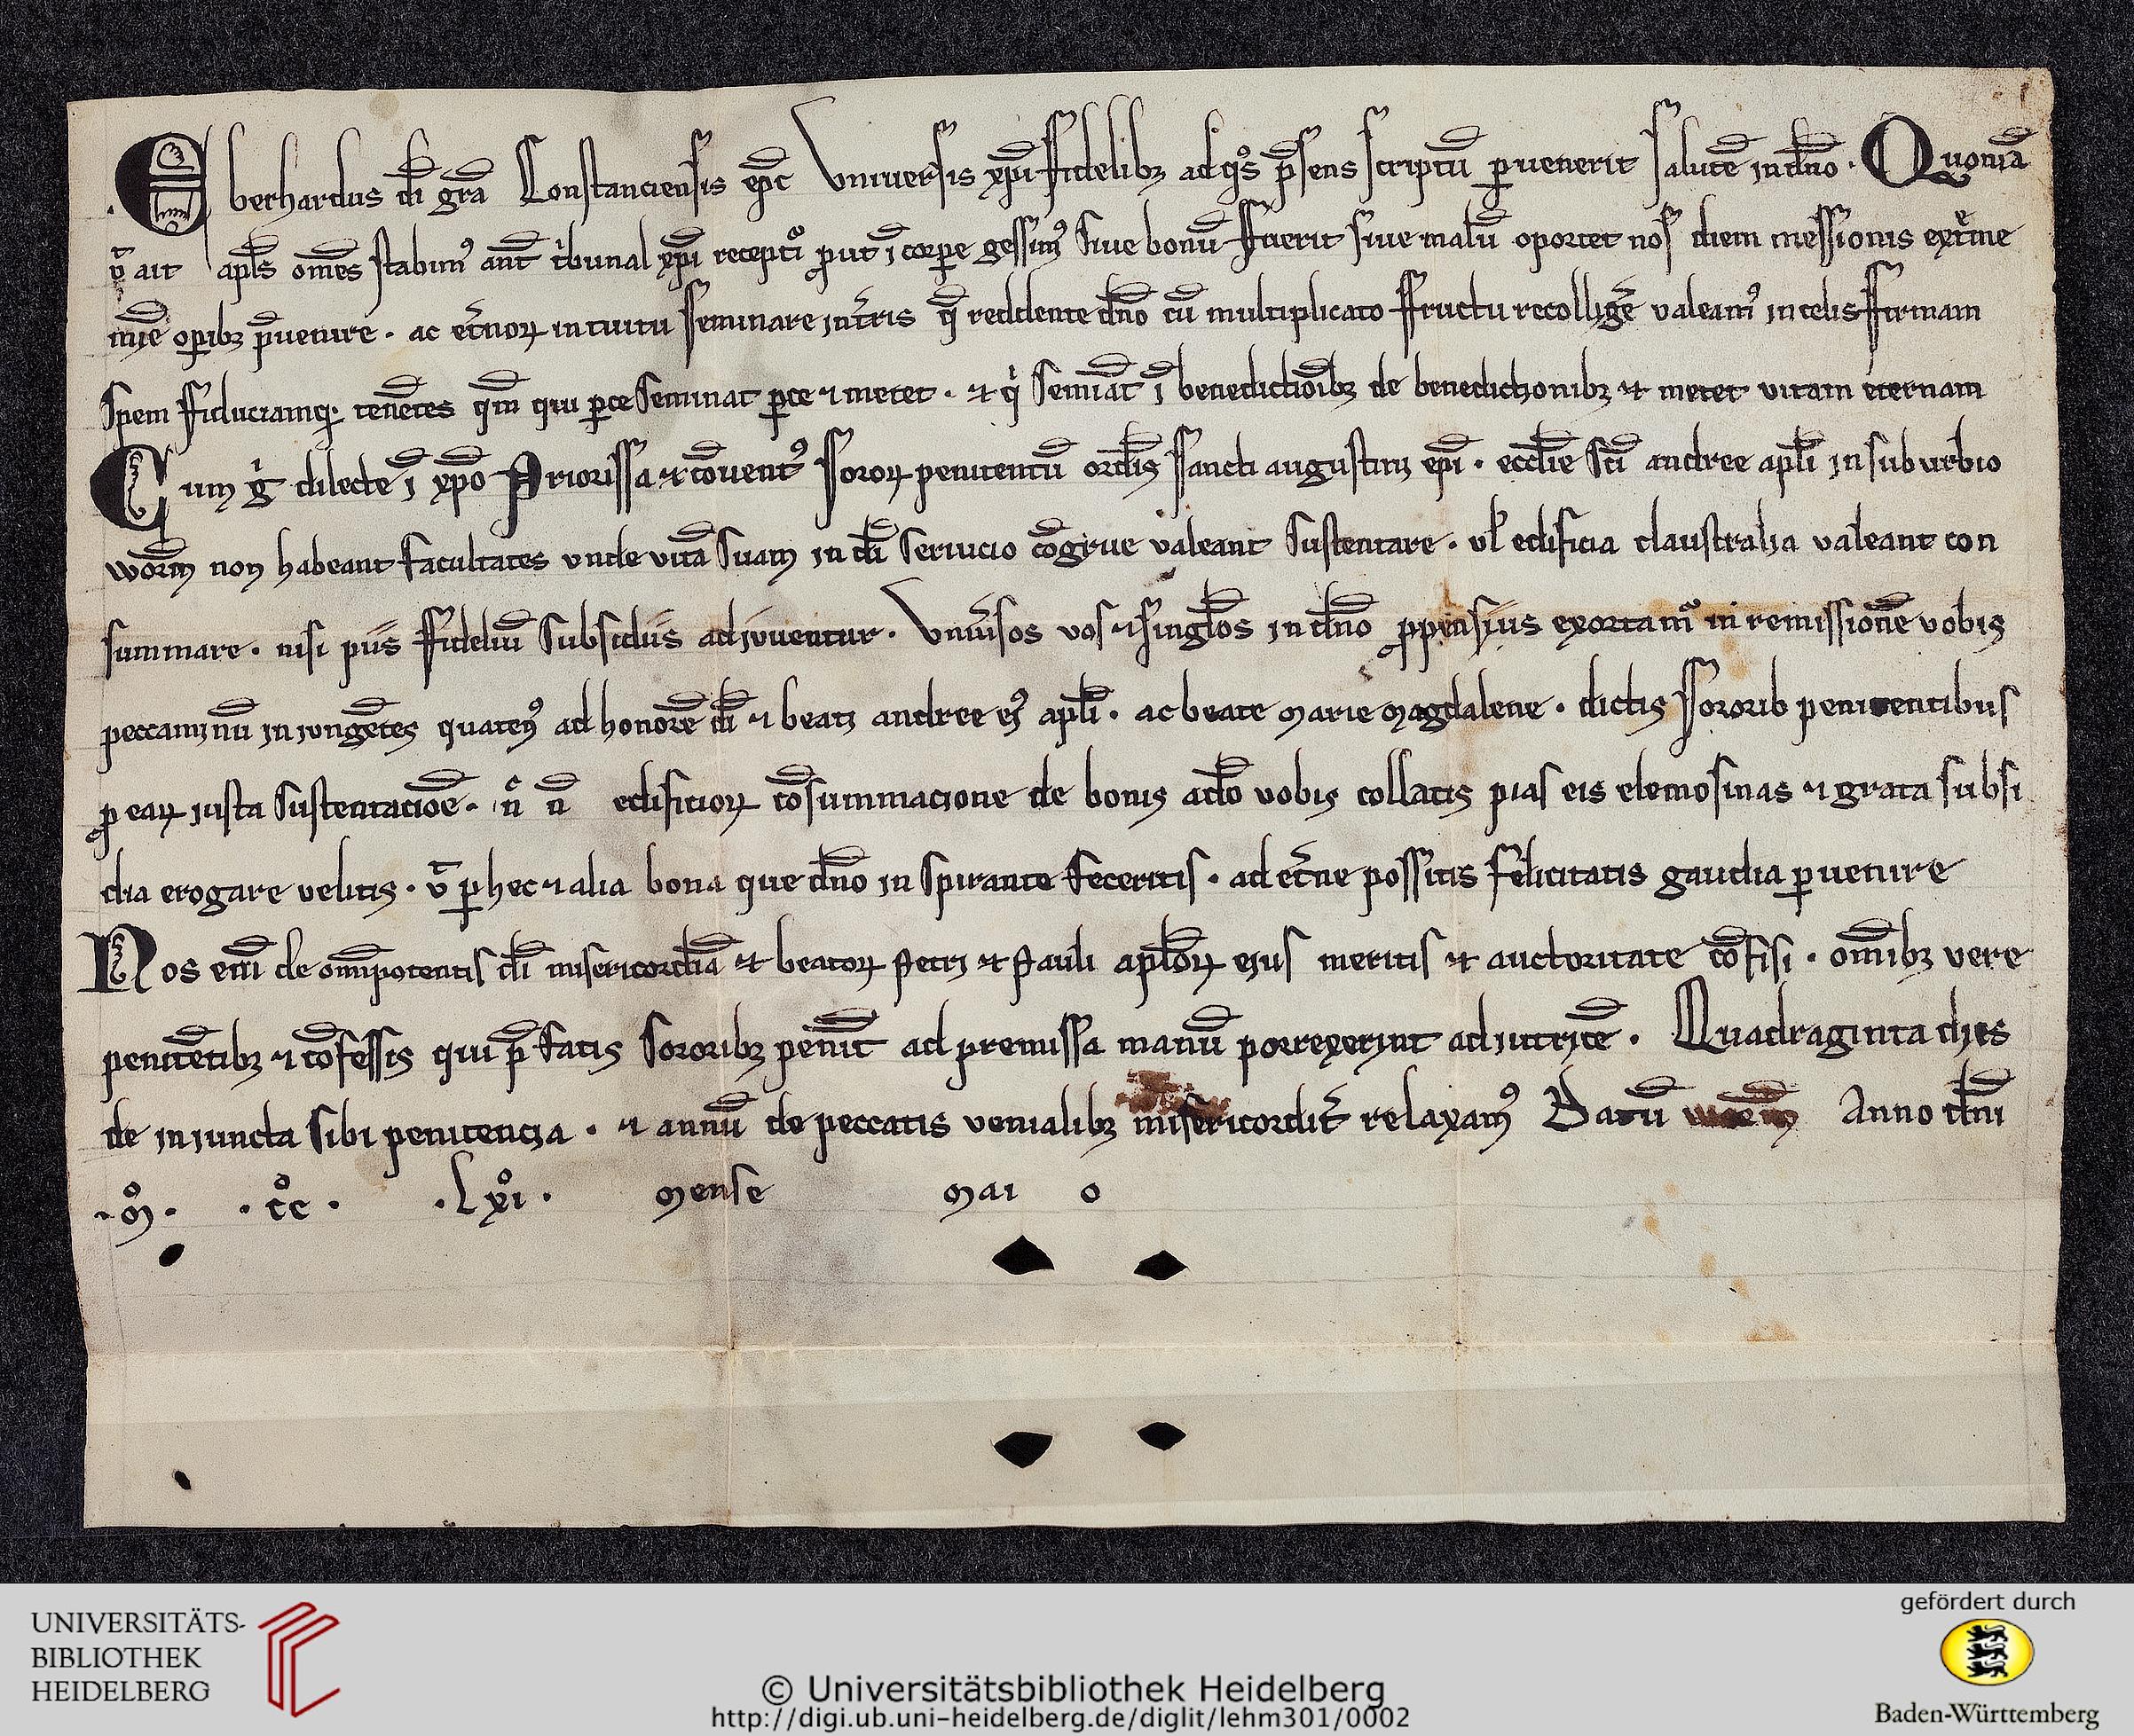 Eberhardus dī gr̄a Constanciensis ep̄c Vniuersis xp̄i fidelibꝫ ad q̊s p̄sens scriptū ꝑuenerit salutē in dn̄o · Quoniā
ait apl̄s om̄es stabimꝰ ant̄ t̍bunal xp̄i recepturi ꝓut ī corꝑe gessimꝰ siue bonū fuerit siue malū oportet nos diem messionis ext̄me
mīe oꝑibꝫ p̄uenire · ac et̄noꝝ intuitu seminare in t̄ris q̄ reddente dn̄o cū multiplicato fructu recolligē valeamꝰ in celis firmam
spem fiduciamqꝫ tenētes qm̄ qui ꝑce seminat ꝑce ⁊ metet · ⁊ q̍ semīat ī benedictiōibꝫ de benedictionibꝫ ⁊ metet vitam eternam
Cum g̍ dilecte ī xp̄o Priorissa ⁊ cōuentꝰ soroꝝ penitentū ordīs sancti augustini ep̄i · eccl̄ie sc̄i andree apl̄i in suburbio
worm̄ non habeant facultates vnde vitā suam in dī seruicio cōgrue valeant sustentare · vl̄ edificia claustralia valeant con
summare · nisi piis fideliū subsidiis adiuuentur · Vniū̍sos vos ⁊ singl̄os in dn̄o ꝓpensius exortamᷣ in remissionē vobis
peccaminū iniungētes quatenꝰ ad honorē dī ⁊ beati andree eiꝰ apl̄i · ac beate marie magdalene · dictis sororib penitentibus
ꝓ eaꝝ iusta sustentaciōe · n̄ n̄ edificioꝝ cōsummacione de bonis a dō vobis collatis pias eis elemosinas ⁊ grata subsi
dia erogare velitis · vt̄ ꝑ hec ⁊ alia bona que dn̄o inspirante feceritis · ad et̄ne possitis felicitatis gaudia ꝑuenire
Nos em̄ de om̄ipotentis dī misericordiā ⁊ beatoꝝ Petri ⁊ Pauli apl̄oꝝ eius meritis ⁊ auctoritate cōfisi · om̄ibꝫ vere
penitētibꝫ ⁊ cōfessis qui p̄fatis sororibꝫ penīt ad premissa manū porrexerint adiutricē · Quadraginta dies
de iniuncta sibi penitencia · ⁊ annū de peccatis venialibꝫ misericordit̄ relaxamꝰ Datū worm̄ Anno dn̄i
· m̊ · · c̊c · · lxi̊ · mense maio
UNIVERSITÄTS-
BIBLIOTHEK
HEIDELBERG
© Universitätsbibliothek Heidelberg
http://digi.ub.uni-heidelberg.de/diglit/lehm301/0002
gefördert durch
Baden-Württemberg